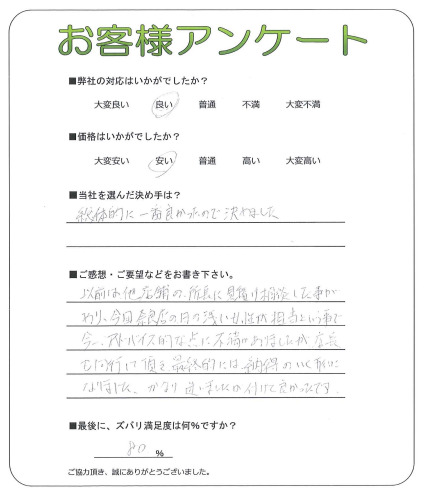 お客様アンケート
■弊社の対応はいかがでしたか？
大変良い 良い 普通 不満 大変不満
■価格はいかがでしたか？
大変安い 安い 普通 高い 大変高い
■当社を選んだ決め手は？
総体的に一番良かったので決めました
■ご感想・ご要望などをお書き下さい。
以前は他店舗の所長に見積り相談した事が
あり、今回奈良店の日の浅い女性が担当という事で
今一、アドバイス的な点に不満はありましたが店長
も同行して頂き最終的には納得のいく形に
なりました、かなり迷いましたが付けて良かったです。
■最後に、ズバリ満足度は何％ですか？
80 ％
ご協力頂き、誠にありがとうございました。